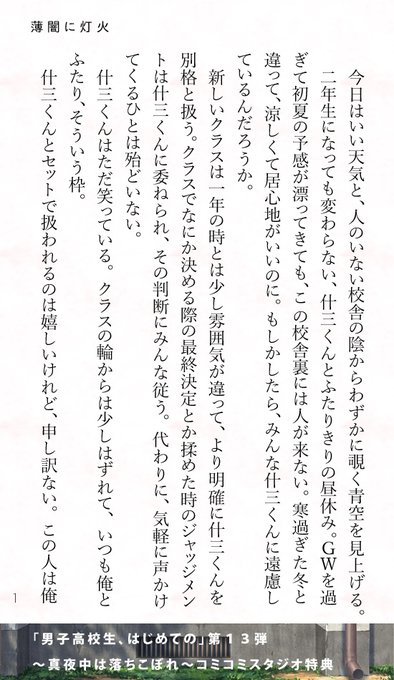 薄闇に灯火
今日はいい天気と、人のいない校舎の陰からわずかに覗く青空を見上げる。
二年生になっても変わらない、什三くんとふたりきりの昼休み。GWを過
ぎて初夏の予感が漂ってきても、この校舎裏には人が来ない。寒過ぎた冬と
違って、涼しくて居心地がいいのに。もしかしたら、みんな什三くんに遠慮し
ているんだろうか。
新しいクラスは一年の時とは少し雰囲気が違って、より明確に什三くんを
別格と扱う。クラスでなにか決める際の最終決定とか揉めた時のジャッジメン
トは什三くんに委ねられ、その判断にみんな従う。代わりに、気軽に声かけ
てくるひとは殆どいない。
什三くんはただ笑っている。クラスの輪からは少しはずれて、いつも俺と
ふたり、そういう枠。
什三くんとセットで扱われるのは嬉しいけれど、申し訳ない。この人は俺
1
「男子高校生、はじめての」第13弾
〜真夜中は落ちこぼれ〜コミコミスタジオ特典